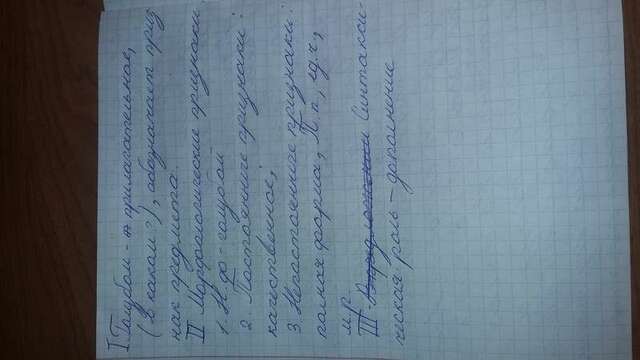 I Голубом - прилагательное,
(в каком?), обозначает приз
нак предмета.
II Морфологические признаки
1. Н.ф - голубой
2. Постоянные признаки:
качественное,
3. Непостоянные признаки:
полная форма, П.п., ед.ч,
м.р
III Синтакси-
ческая роль - дополнение